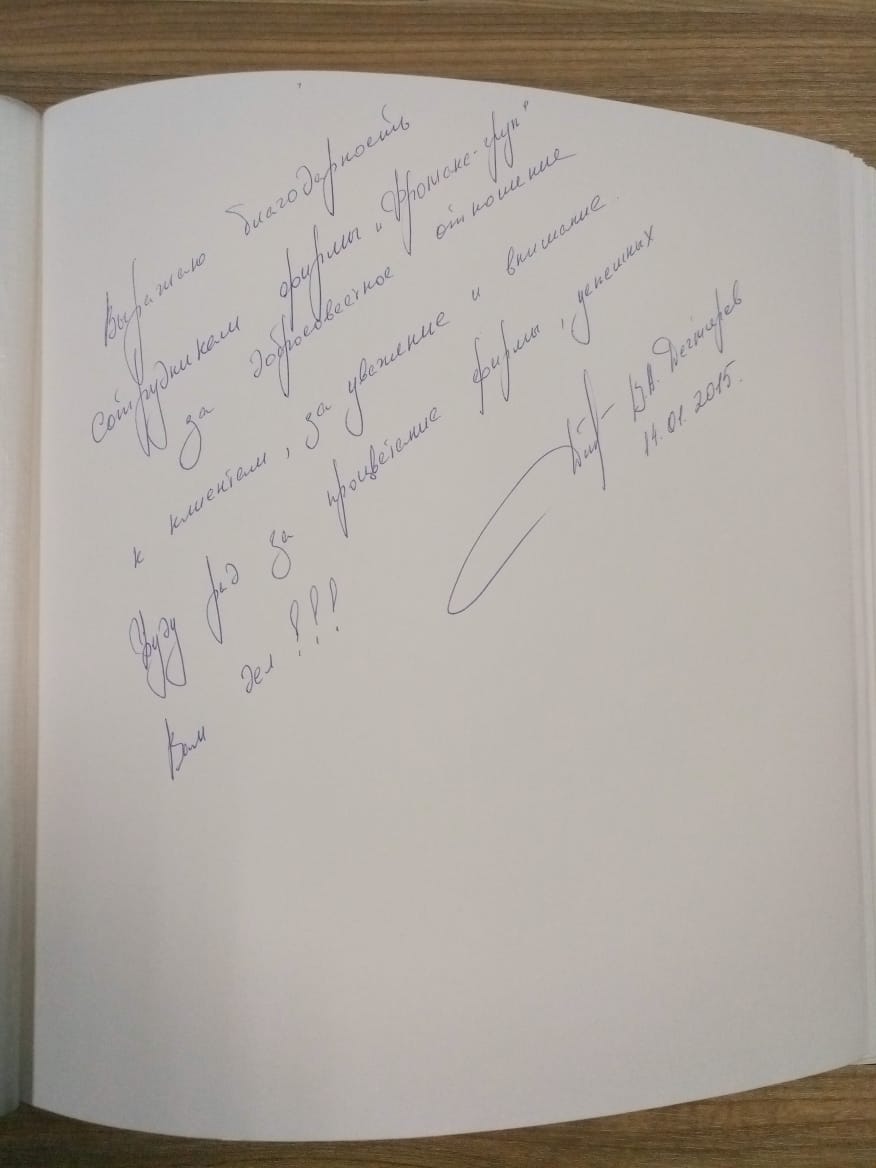 Выражаю благодарность
сотрудникам фирмы "Фромакс-груп"
за добросовестное отношение
к клиентам, за уважение и внимание.
Буду рад за процветание фирмы, успешных
Вам дел!!!
В.А. Дегтярев
14.01.2015.